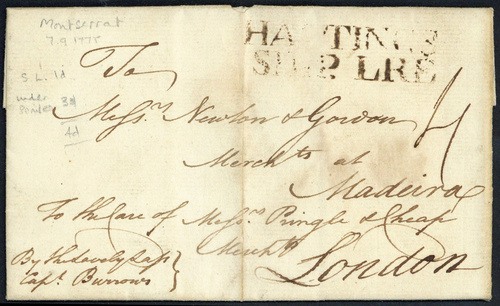 Montserrat
7.9.1775
HASTINGS
SHIP LRE
S.L. 1d
under
3d
4d
To
Messrs Newton & Gordon
Merchts at
Madeira
To the Care of Messrs Pringle & Cheap
Merchts
London
By the Lovely Lass
Capt Burrows